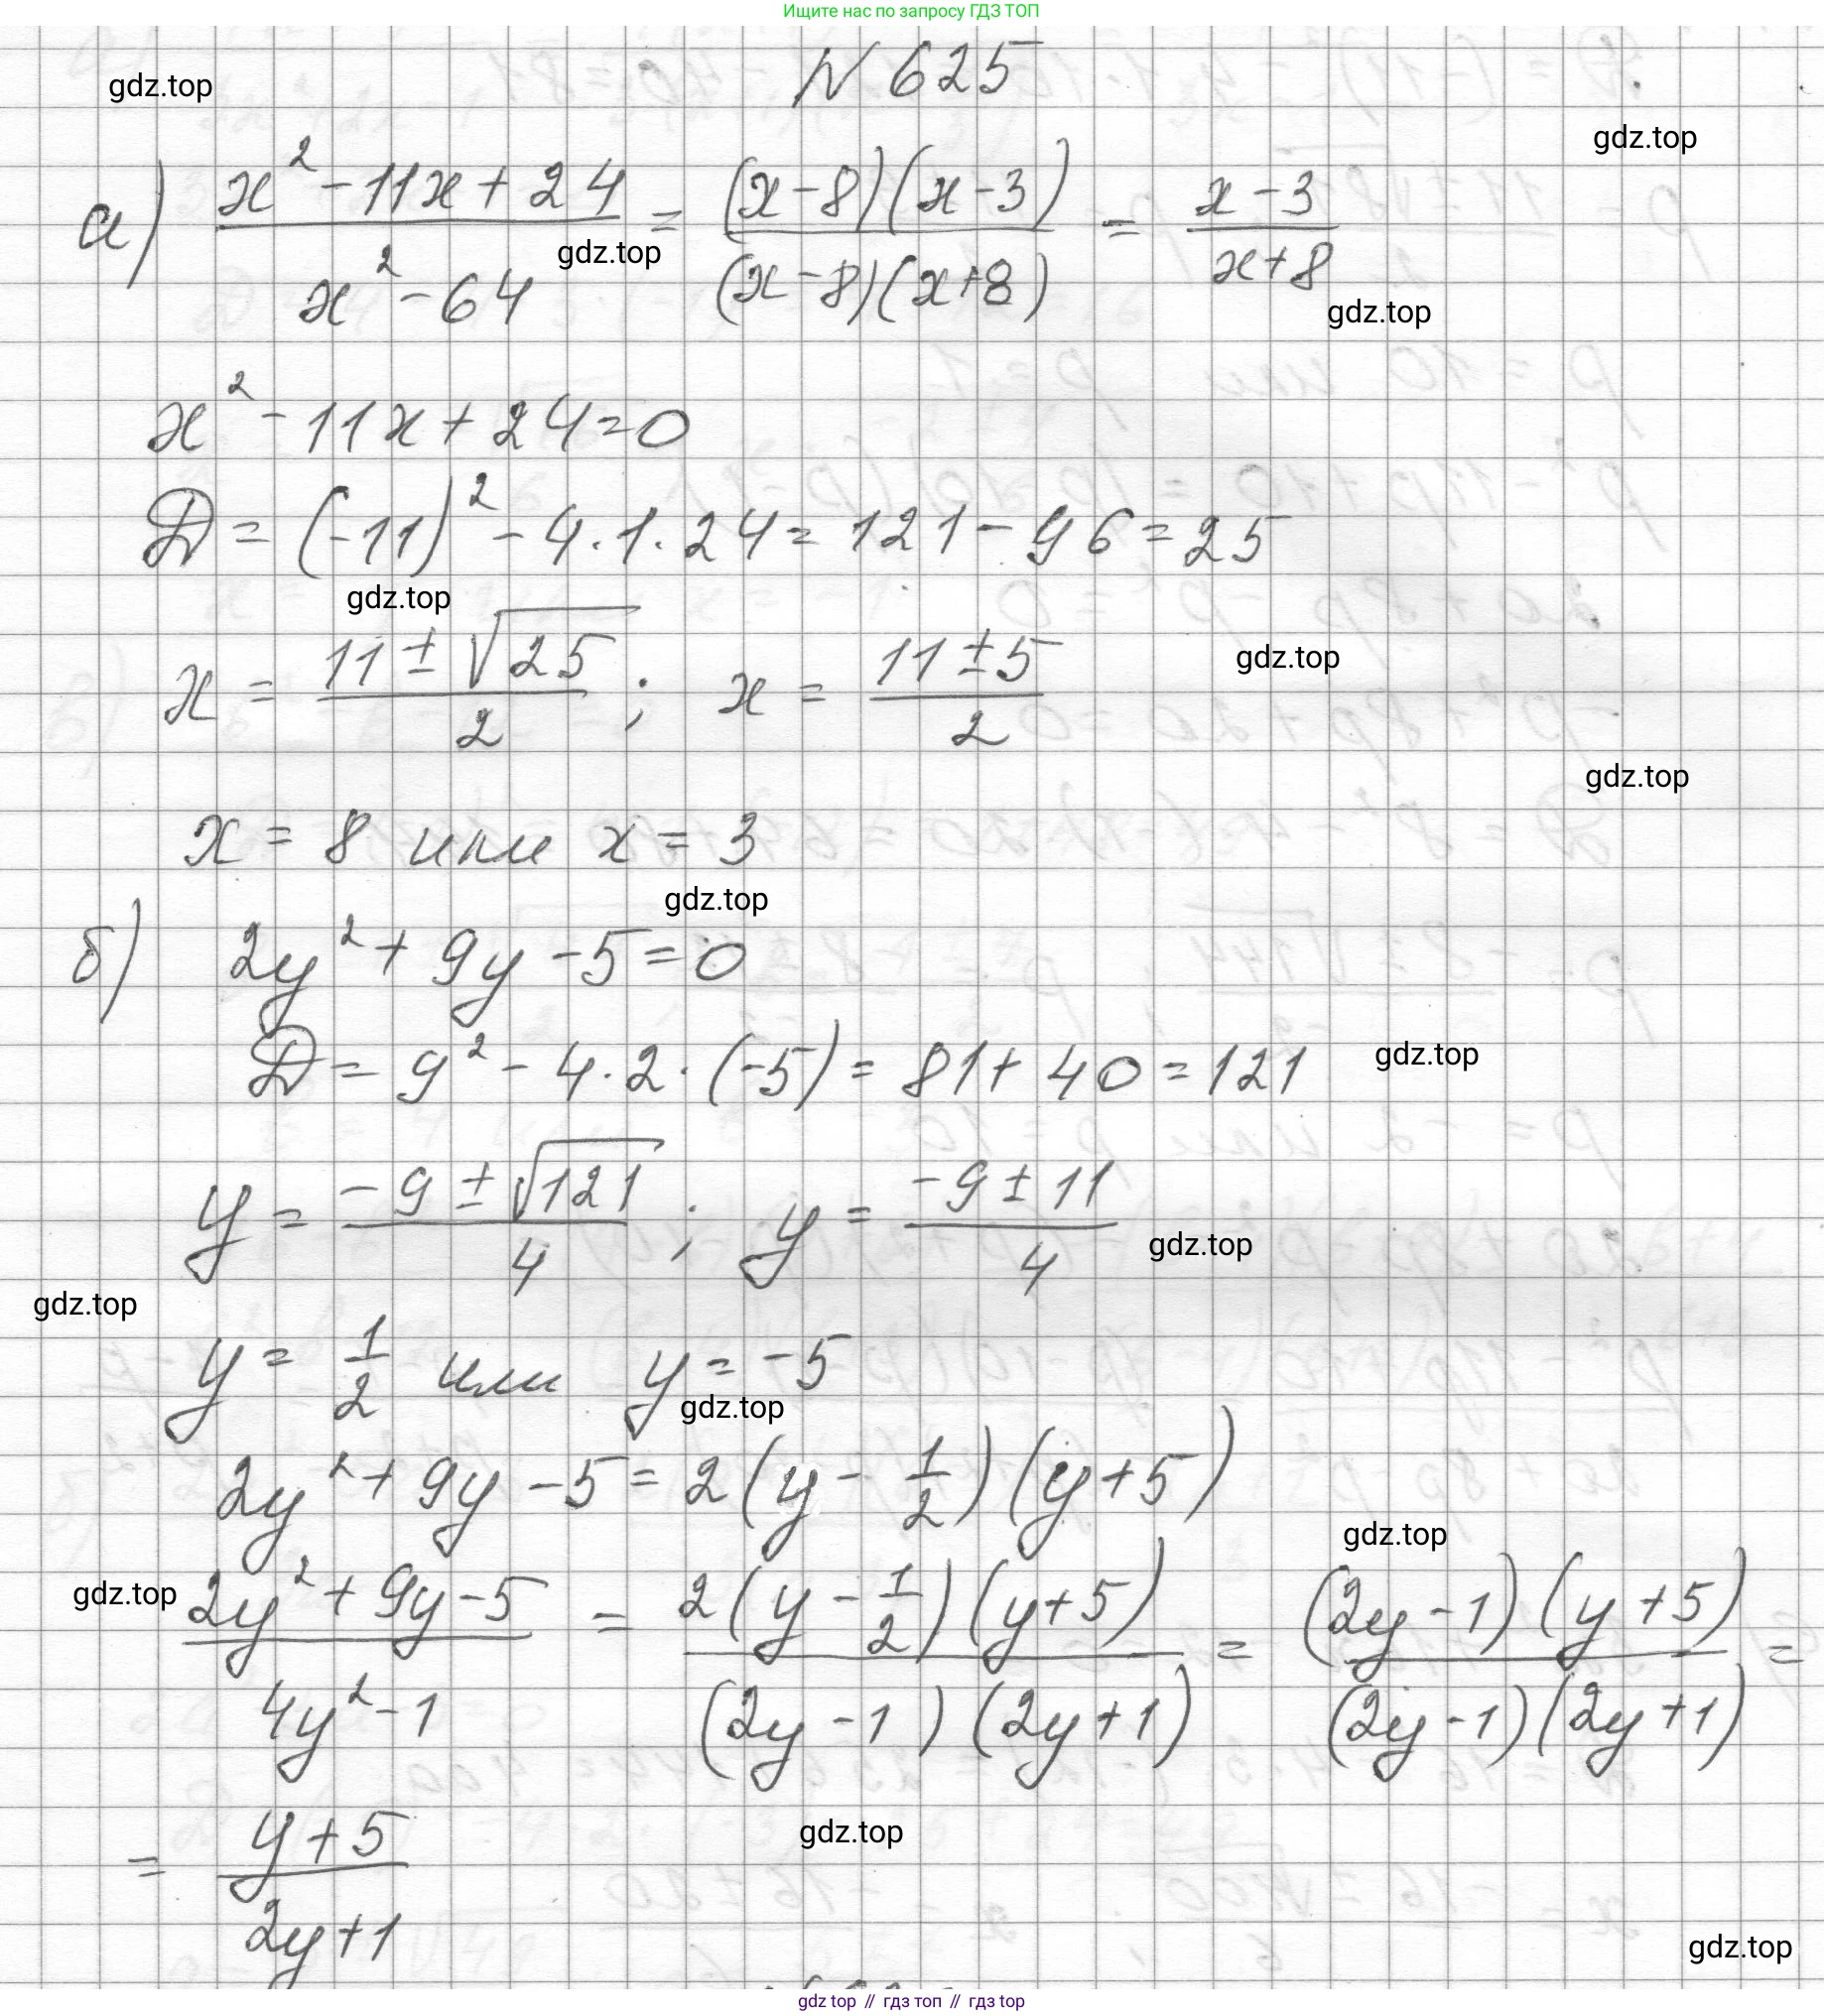 Ищите нас по запросу ГДЗ ТОП
N 625
gdz.top
gdz.top
а) (x² - 11x + 24)/(x² - 64) = ((x - 8)(x - 3))/((x - 8)(x + 8)) = (x - 3)/(x + 8)
gdz.top
gdz.top
x² - 11x + 24 = 0
D = (-11)² - 4 · 1 · 24 = 121 - 96 = 25
gdz.top
x = (11 ± √25)/2 ; x = (11 ± 5)/2
gdz.top
gdz.top
x = 8 или x = 3
gdz.top
б) 2y² + 9y - 5 = 0
D = 9² - 4 · 2 · (-5) = 81 + 40 = 121
gdz.top
y = (-9 ± √121)/4 ; y = (-9 ± 11)/4
gdz.top
gdz.top
y = 1/2 или y = -5
gdz.top
2y² + 9y - 5 = 2(y - 1/2)(y + 5)
gdz.top
gdz.top
(2y² + 9y - 5)/(4y² - 1) = (2(y - 1/2)(y + 5))/((2y - 1)(2y + 1)) = ((2y - 1)(y + 5))/((2y - 1)(2y + 1)) =
gdz.top
= (y + 5)/(2y + 1)
gdz.top
gdz top // гдз топ // gdz top